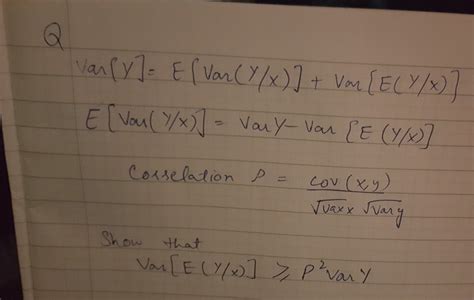 Q
Var[Y] = E[Var(Y/x)] + Var[E(Y/x)]
E[Var(Y/x)] = Var Y - Var [E(Y/x)]
Correlation P = cov(x,y) / √Varx √Vary
Show that
Var[E(Y/x)] ≥ P² Var Y